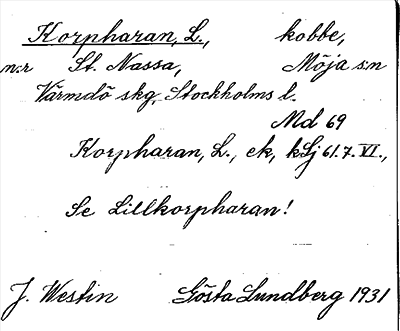 Korpharan, L., kobbe,
n:r St. Nassa, Möja s:n
Värmdö skg, Stockholms l.
Md 69
Korpharan, L., ek, kLj 61.7.VI.,
Se Lillkorpharan!
J. Westin Gösta Lundberg 1931